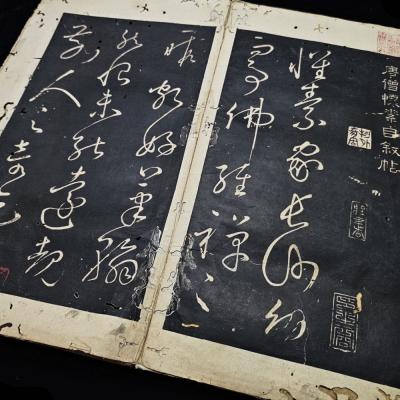 唐僧懷素自敘帖
懷素家長沙幼
而事佛經禪之
暇頗好筆翰
然恨未能遠覩
前人之奇迹